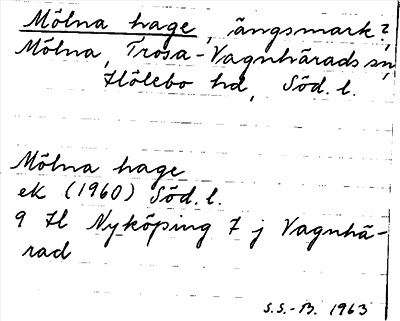 Mölna hage, ängsmark?,
Mölna, Trosa-Vagnhärads sn,
Hölebo hd, Söd. l.
Mölna hage
ek (1960) Söd. l.
9 H Nyköping 7 j Vagnhä-
rad
S.S.-B. 1963